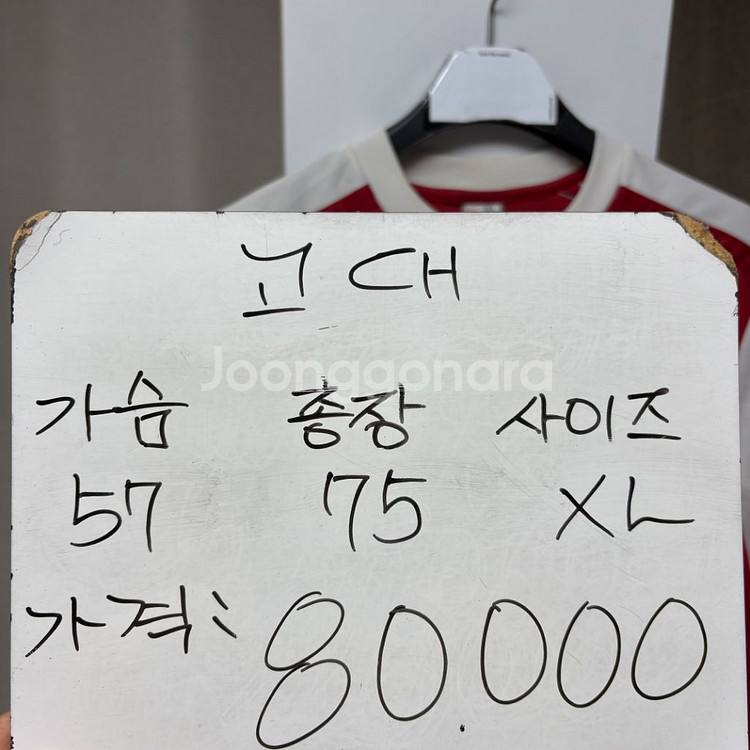 고대
Joonggonara
가슴 총장 사이즈
57 75 XL
가격: 80000